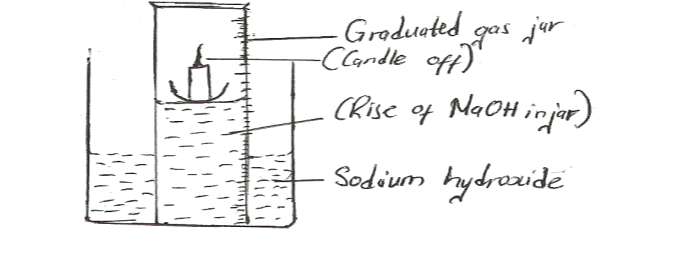 Graduated gas jar
(Candle off)
(Rise of NaOH in jar)
Sodium hydroxide